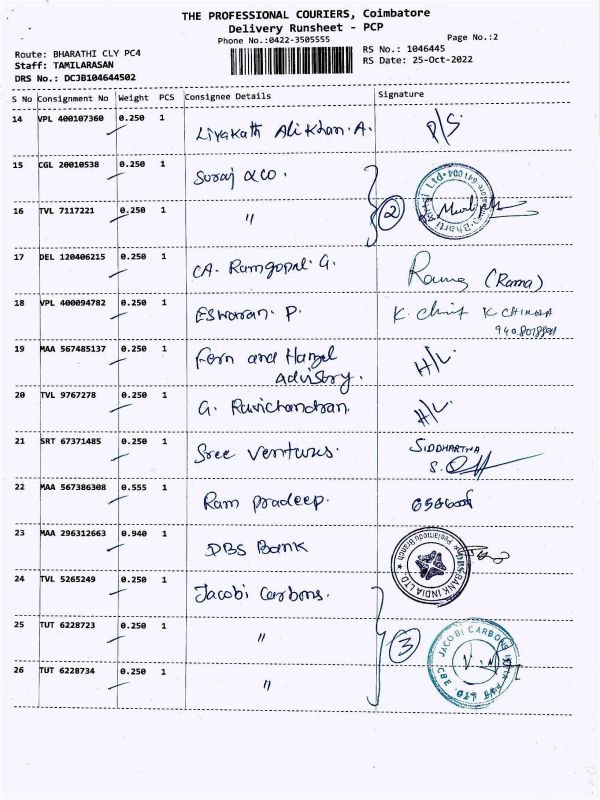 THE PROFESSIONAL COURIERS, Coimbatore
Delivery Runsheet - PCP
Phone No.:0422-3505555
Page No.:2
Route: BHARATHI CLY PC4
Staff: TAMILARASAN
DRS No.: DCJB104644502
RS No.: 1046445
RS Date: 25-Oct-2022
S No Consignment No Weight PCS Consignee Details Signature
14 VPL 400107360 0.250 1 Liyakath Ali Khan. A. P/S.
15 CGL 20010538 0.250 1 Suraj & co.
16 TVL 7117221 0.250 1 " 2
17 DEL 120406215 0.250 1 CA. Ramgopal. G. (Rama)
18 VPL 400094782 0.250 1 Eswaran. P. K.
19 MAA 567485137 0.250 1 Forn and Hanzel
Advisory. H/L.
20 TVL 9767278 0.250 1 G. Ravichandran. H/L.
21 SRT 67371485 0.250 1 Sree Ventures. SIDDHARTHA
S.
22 MAA 567386308 0.555 1 Ram pradeep.
23 MAA 296312663 0.940 1 DBS Bank
DBS BANK INDIA LTD. ★ Peelamedu Branch ★
24 TVL 5265249 0.250 1 Jacobi Carbons.
25 TUT 6228723 0.250 1 " 3
JACOBI CARBONS INDIA PVT LTD CBE
26 TUT 6228734 0.250 1 "